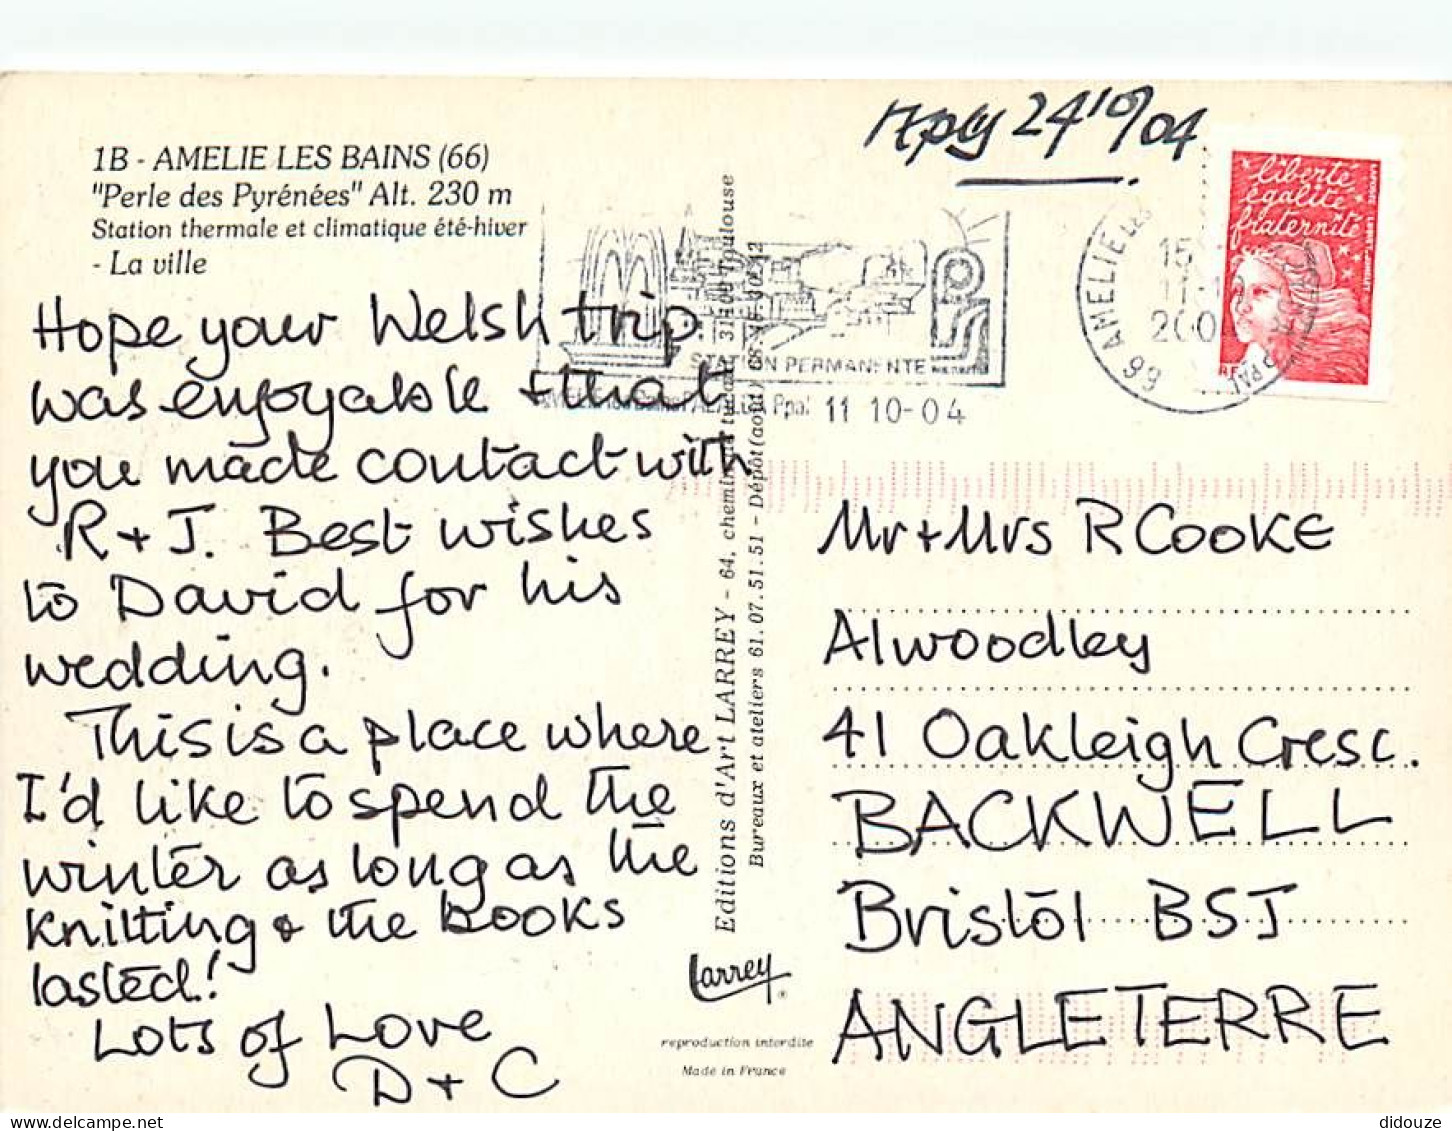 1B - AMELIE LES BAINS (66)
"Perle des Pyrénées" Alt. 230 m
Station thermale et climatique été-hiver
- La ville
Hope your Welsh trip
was enjoyable + that
you made contact with
R + J. Best wishes
to David for his
wedding.
This is a place where
I'd like to spend the
winter as long as the
knitting & the books
lasted!
Lots of Love
D + C
24/10/04
liberté
égalité
fraternité
LA POSTE
66 AMELIE LES
15
11-10
200
STATION PERMANENTE
11 10-04
Editions d'Art LARREY - 64, chemin 31100 Toulouse
Bureaux et ateliers 61.07.51.51 - Dépôt (août)
Larrey
reproduction interdite
Made in France
Mr + Mrs R COOKE
Alwoodley
41 Oakleigh Cresc.
BACKWELL
Bristol BSJ
ANGLETERRE
didouze